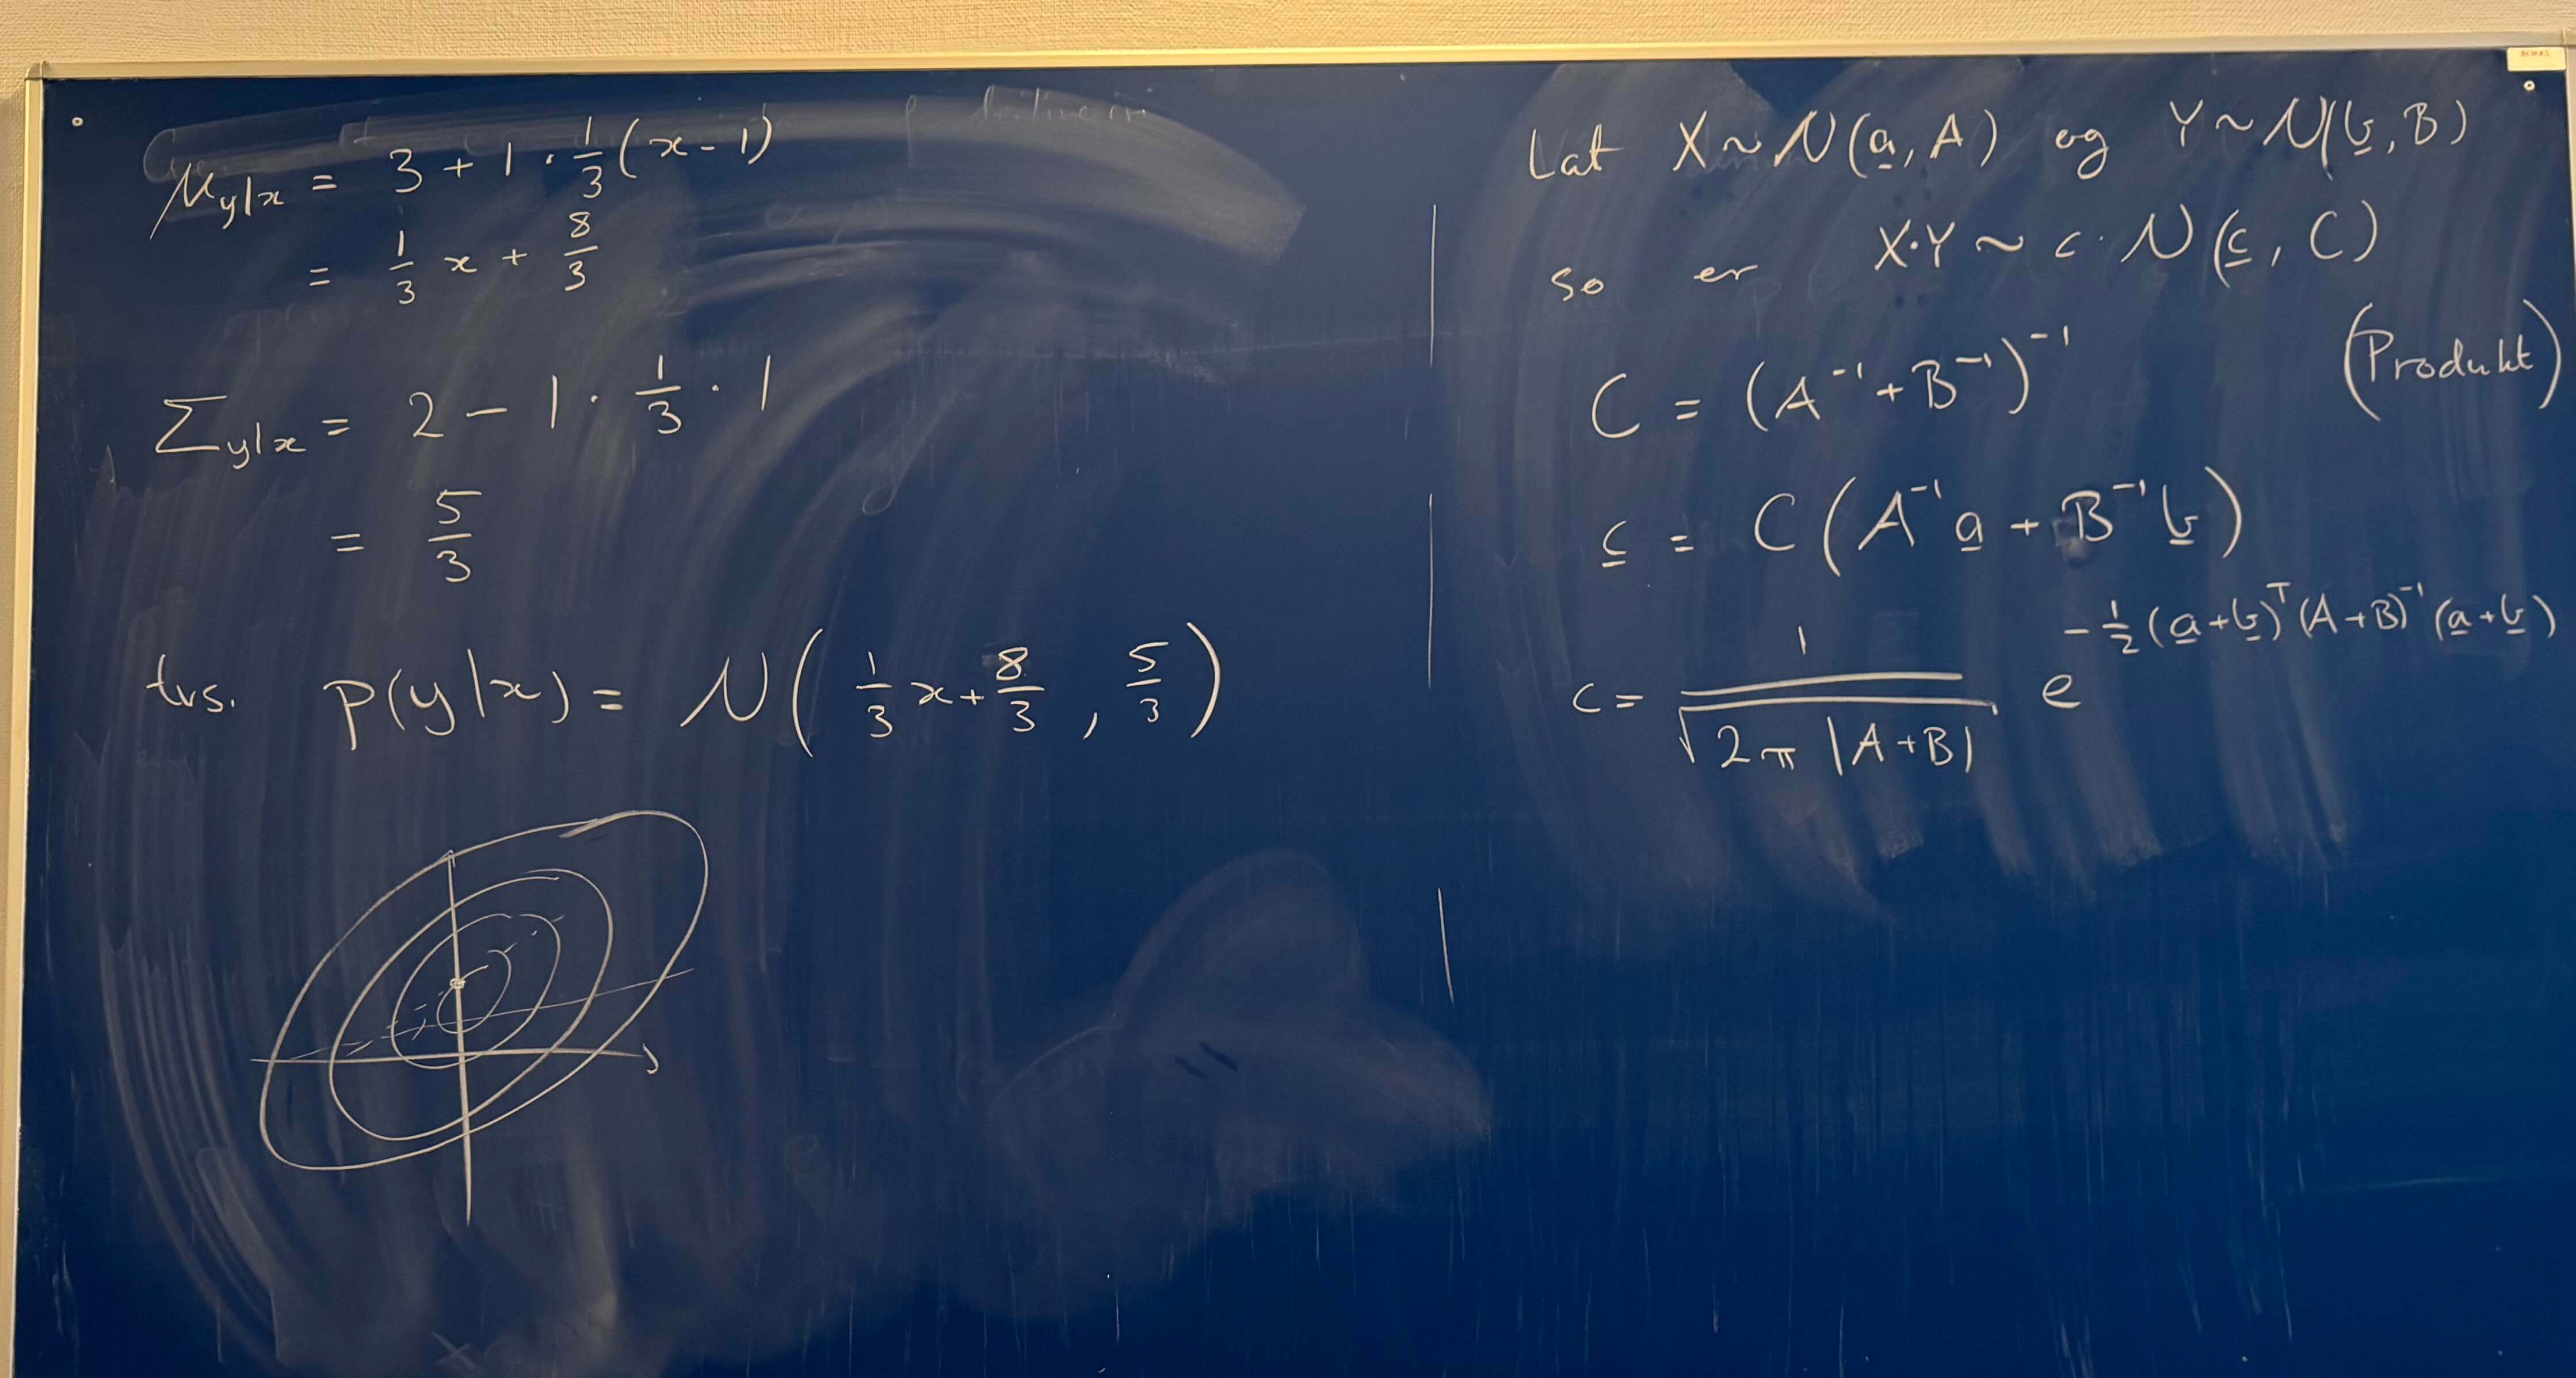 μ_{y|x} = 3 + 1 · 1/3 (x - 1)
= 1/3 x + 8/3
Σ_{y|x} = 2 - 1 · 1/3 · 1
= 5/3
tvs. P(y|x) = N(1/3 x + 8/3, 5/3)
Lat X ~ N(a̲, A) og Y ~ N(b̲, B)
so er X·Y ~ c · N(c̲, C)
(Produkt)
C = (A⁻¹ + B⁻¹)⁻¹
c̲ = C(A⁻¹a̲ + B⁻¹b̲)
c = 1/√(2π |A+B|) e^{-1/2 (a̲+b̲)ᵀ (A+B)⁻¹ (a̲+b̲)}